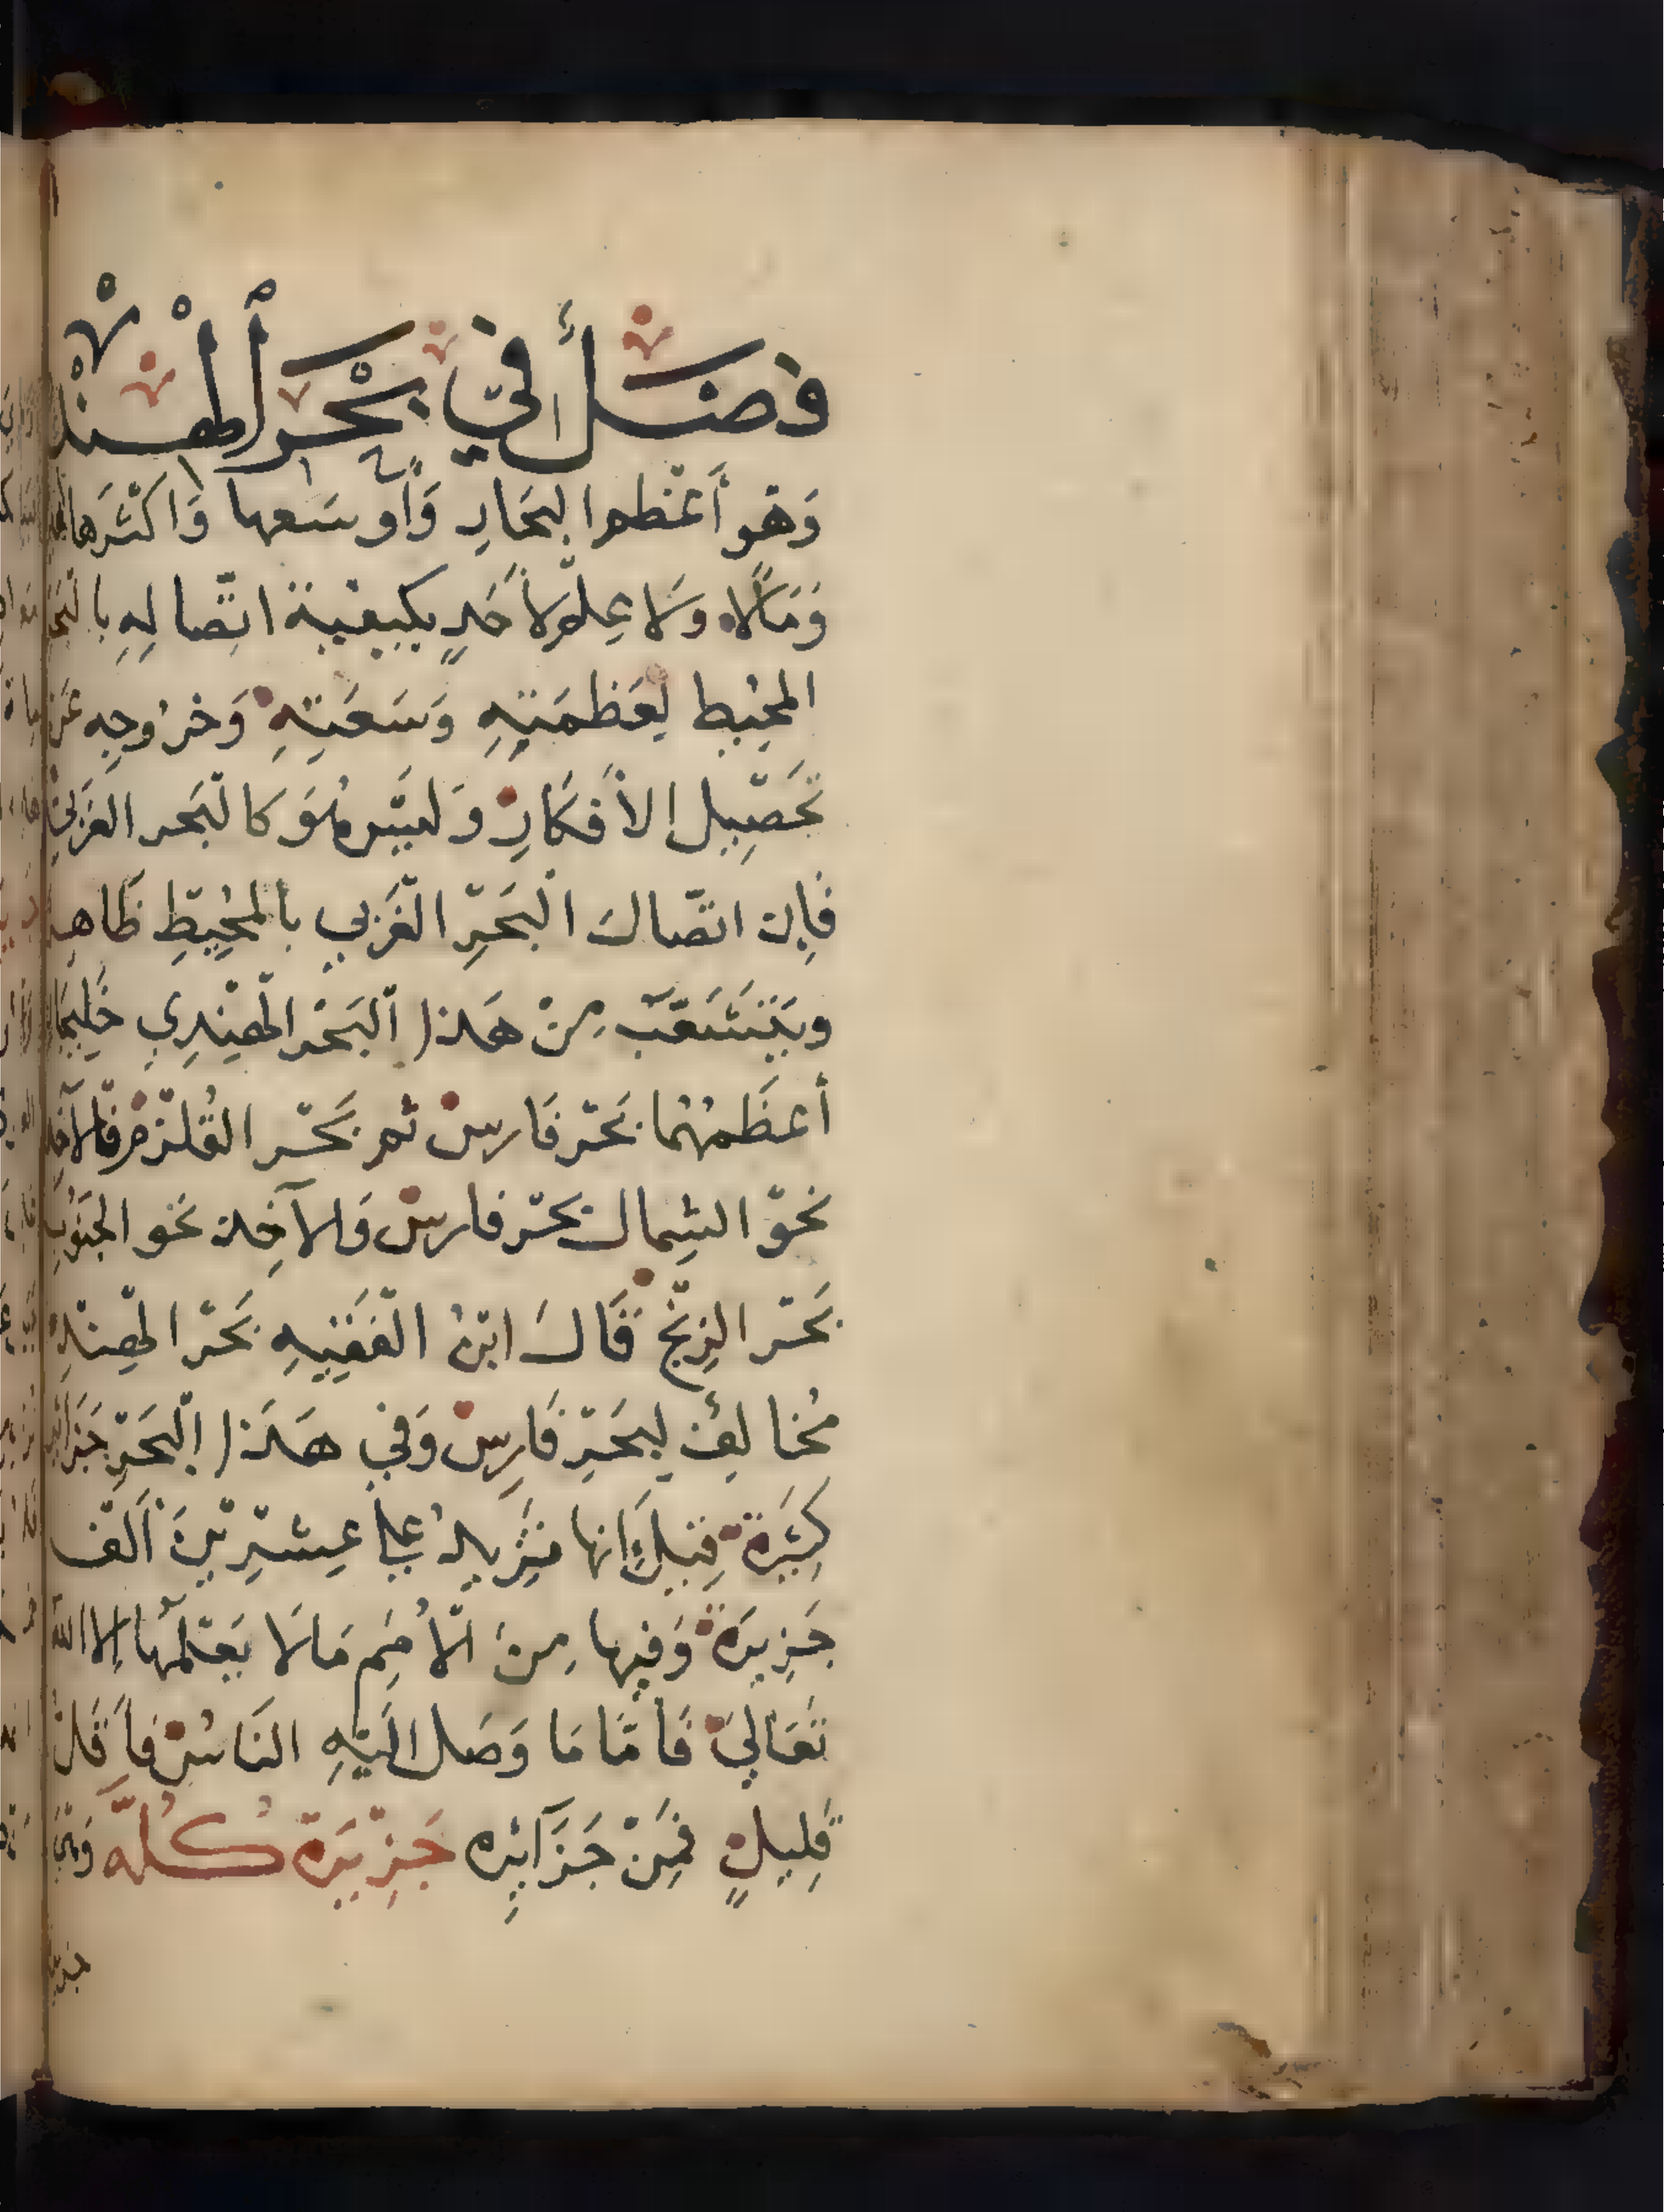 فصل في بحر الهند
وَهُو أَعْظم البحَارِ وَأوسَعها وَاكْثَرها
وَمَالاً وَلا عِلم لأحَدٍ بكيفية اتّصالِهِ بالبحر
المحِيط لِعَظمَتِهِ وَسَعَتِهِ وَخرُوجِه عَن
تحَصِيل الأفكَارِ وَليسَ هُوَ كالبَحر الغَربي
فَإن اتصّال البَحْرِ الغَربي بالمُحِيطِ ظَاهِر
ويَتَشَعّب مِنْ هَذا البَحْر الهِندِي خَلِيجَان
أعظَمهُما بَحْر فَارس ثم بَحْر القُلْزم فالآخِذ
نَحْو الشِمال بَحْر فارس وَالآخِذ نحو الجنُوبِ
بَحْر الزِنْج قَالَ ابْنُ الفَقِيهِ بَحْر الهِنْدِ
مُخالِف لِبَحْرِ فَارِس وَفي هَذا البَحْرِ جَزائر
كثِيَرة قِيلَ إنها تَزِيدُ علي عِشرِينَ ألْف
جَزِيرَة وَفيها مِنَ الأُمَمِ مَا لَا يَعْلمُها إلا الله
تَعَالَي فَأمّا مَا وَصَل الَيْهِ النَاسُ فأَقَل
قَلِيلٍ فمِنْ جَزَآئِره جَزِيَرة كُلَه وَهي